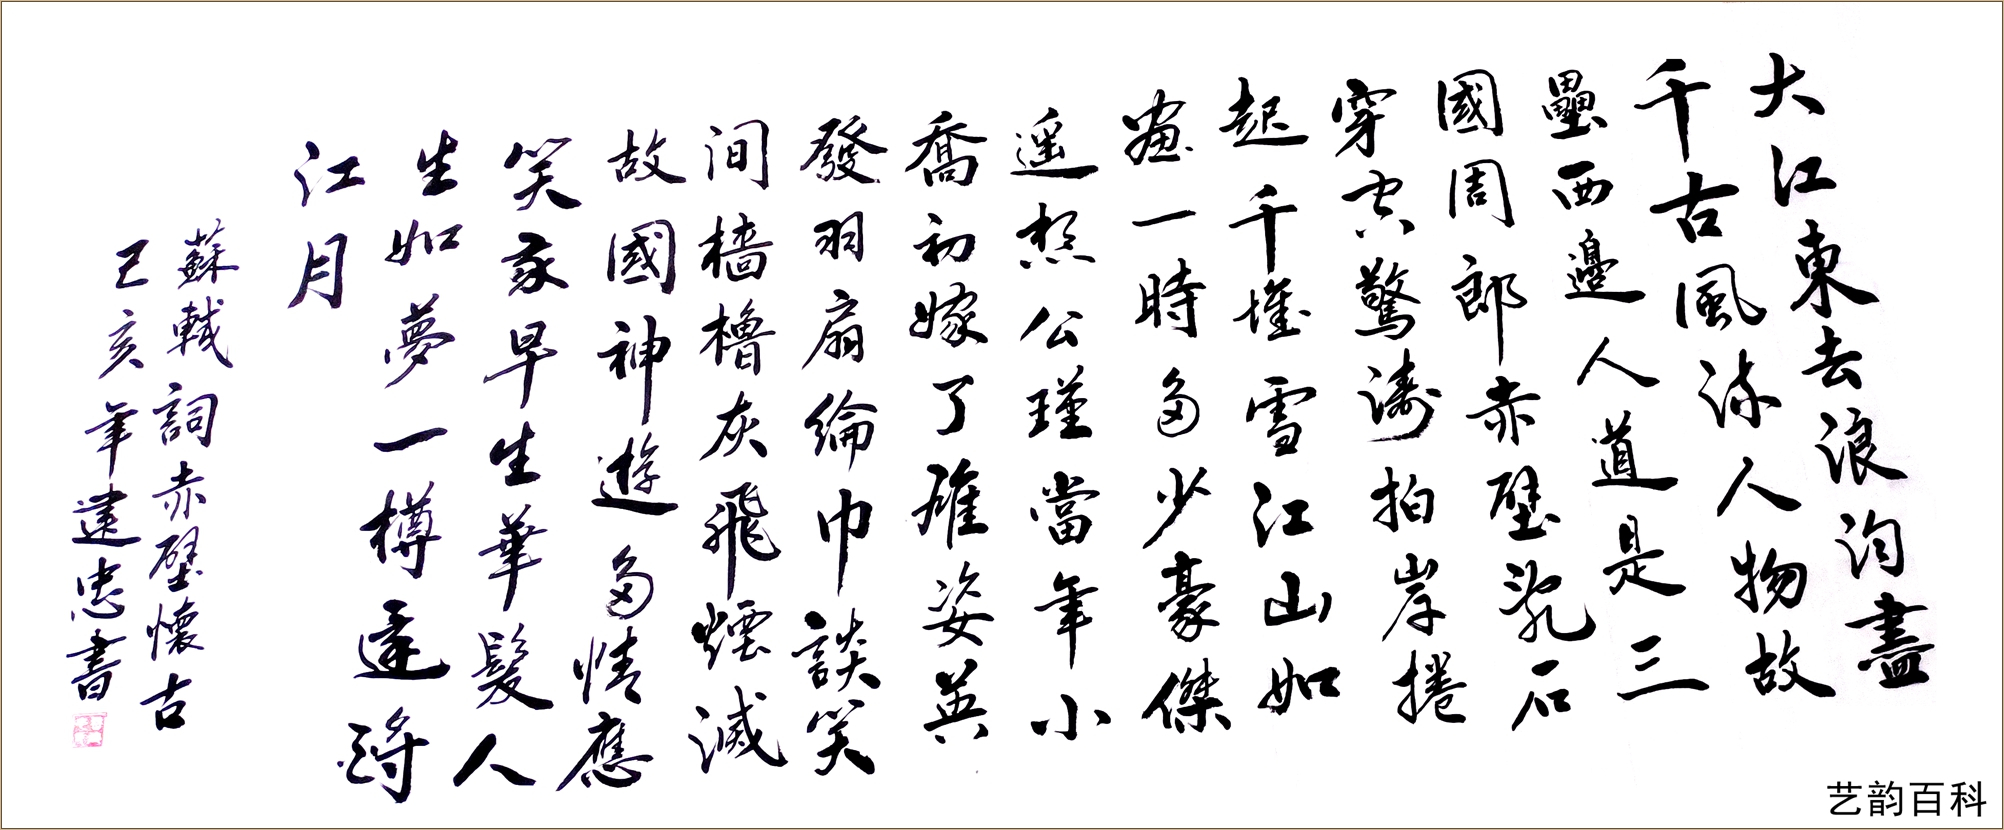 大江東去浪淘盡
千古風流人物故
壘西邊人道是三
國周郎赤壁亂石
穿空驚濤拍岸捲
起千堆雪江山如
畫一時多少豪傑
遥想公瑾當年小
喬初嫁了雄姿英
發羽扇綸巾談笑
间檣櫓灰飛煙滅
故國神遊多情應
笑我早生華髮人
生如夢一樽還酹
江月
蘇軾詞赤壁懷古
己亥年忠書
艺韵百科